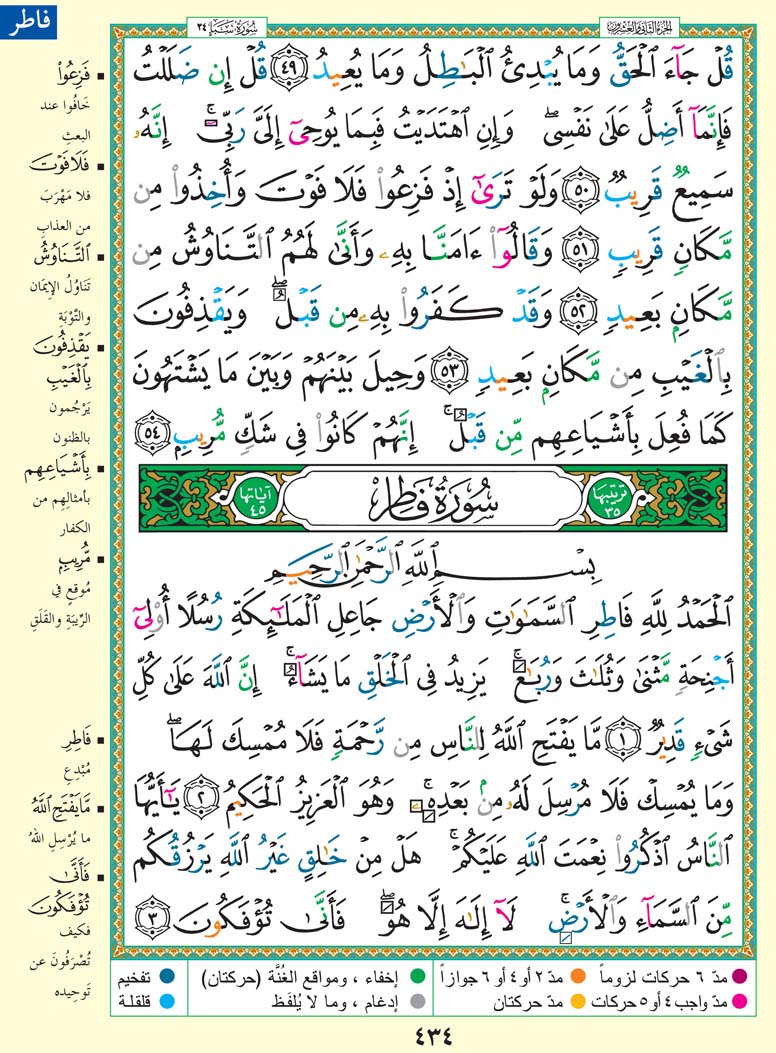 فاطر
الجزء الثاني والعشرون
سُورَةُ سَبَإٍ ٣٤
قُلْ جَآءَ ٱلْحَقُّ وَمَا يُبْدِئُ ٱلْبَٰطِلُ وَمَا يُعِيدُ ٤٩ قُلْ إِن ضَلَلْتُ
فَإِنَّمَآ أَضِلُّ عَلَىٰ نَفْسِىۖ وَإِنِ ٱهْتَدَيْتُ فَبِمَا يُوحِىٓ إِلَىَّ رَبِّىٓۚ إِنَّهُۥ
سَمِيعٌ قَرِيبٌ ٥٠ وَلَوْ تَرَىٰٓ إِذْ فَزِعُوا۟ فَلَا فَوْتَ وَأُخِذُوا۟ مِن
مَّكَانٍ قَرِيبٍ ٥١ وَقَالُوٓا۟ ءَامَنَّا بِهِۦ وَأَنَّىٰ لَهُمُ ٱلتَّنَاوُشُ مِن
مَّكَانٍۭ بَعِيدٍ ٥٢ وَقَدْ كَفَرُوا۟ بِهِۦ مِن قَبْلُۖ وَيَقْذِفُونَ
بِٱلْغَيْبِ مِن مَّكَانٍۭ بَعِيدٍ ٥٣ وَحِيلَ بَيْنَهُمْ وَبَيْنَ مَا يَشْتَهُونَ
كَمَا فُعِلَ بِأَشْيَاعِهِم مِّن قَبْلُۚ إِنَّهُمْ كَانُوا۟ فِى شَكٍّ مُّرِيبٍۭ ٥٤
ترتيبها ٣٥
سُورَةُ فَاطِرٍ
آياتها ٤٥
بِسْمِ ٱللَّهِ ٱلرَّحْمَٰنِ ٱلرَّحِيمِ
ٱلْحَمْدُ لِلَّهِ فَاطِرِ ٱلسَّمَٰوَٰتِ وَٱلْأَرْضِ جَاعِلِ ٱلْمَلَٰٓئِكَةِ رُسُلًا أُو۟لِىٓ
أَجْنِحَةٍ مَّثْنَىٰ وَثُلَٰثَ وَرُبَٰعَۚ يَزِيدُ فِى ٱلْخَلْقِ مَا يَشَآءُۚ إِنَّ ٱللَّهَ عَلَىٰ كُلِّ
شَىْءٍ قَدِيرٌ ١ مَّا يَفْتَحِ ٱللَّهُ لِلنَّاسِ مِن رَّحْمَةٍ فَلَا مُمْسِكَ لَهَاۖ
وَمَا يُمْسِكْ فَلَا مُرْسِلَ لَهُۥ مِنۢ بَعْدِهِۦۚ وَهُوَ ٱلْعَزِيزُ ٱلْحَكِيمُ ٢ يَٰٓأَيُّهَا
ٱلنَّاسُ ٱذْكُرُوا۟ نِعْمَتَ ٱللَّهِ عَلَيْكُمْۚ هَلْ مِنْ خَٰلِقٍ غَيْرُ ٱللَّهِ يَرْزُقُكُم
مِّنَ ٱلسَّمَآءِ وَٱلْأَرْضِۚ لَآ إِلَٰهَ إِلَّا هُوَۖ فَأَنَّىٰ تُؤْفَكُونَ ٣
فَزِعُوا۟
خَافُوا عند
البعثِ
فَلَا فَوْتَ
فلا مَهْرَبَ
من العذابِ
ٱلتَّنَاوُشُ
تَنَاوُلُ الإيمَان
والتَّوْبَةِ
يَقْذِفُونَ
بِٱلْغَيْبِ
يَرْجُمون
بالظنون
بِأَشْيَاعِهِم
بأمثالِهِم من
الكفار
مُّرِيبٍ
مُوقِعٍ في
الرِّيبَةِ والقَلَقِ
فَاطِرِ
مُبْدِعِ
مَّا يَفْتَحِ ٱللَّهُ
ما يُرْسِلِ اللهُ
فَأَنَّىٰ
تُؤْفَكُونَ
فكيف
تُصْرَفُونَ عن
تَوحِيدِه
مدّ ٦ حركات لزوماً
مدّ ٢ أو ٤ أو ٦ جوازاً
إخفاء ، ومواقع الغُنَّة (حركتان)
تفخيم
مدّ واجب ٤ أو ٥ حركات
مدّ حركتان
إدغام ، وما لا يُلفَظ
قلقلة
٤٣٤